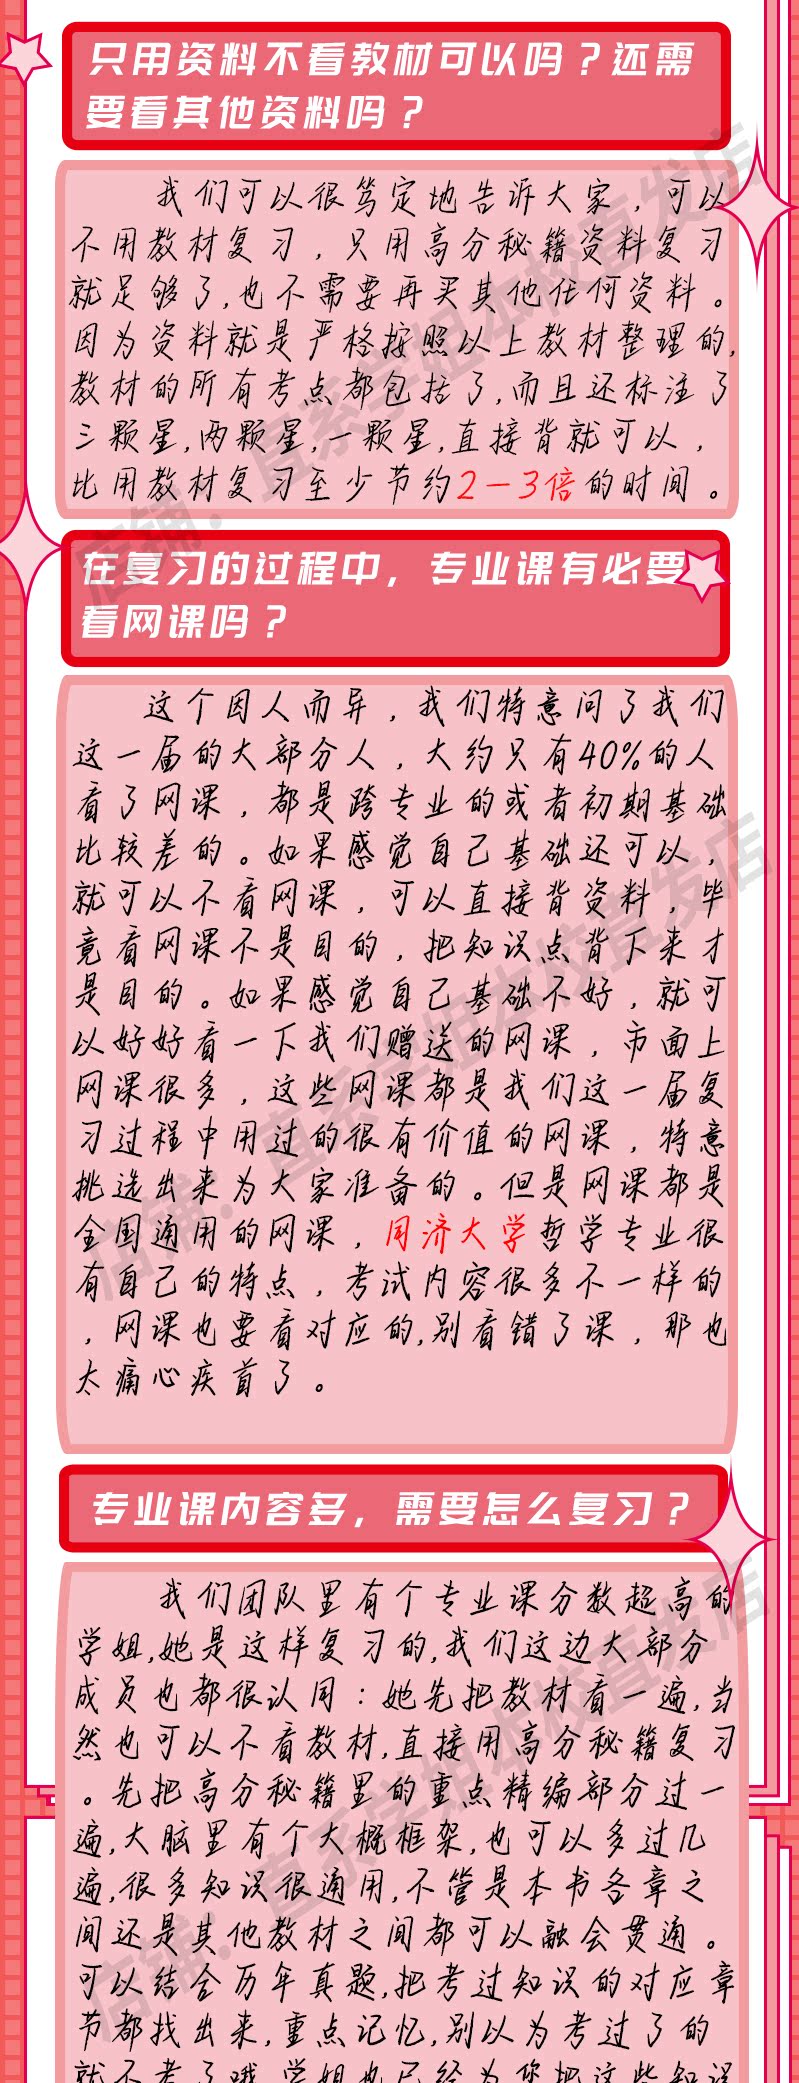 只用资料不看教材可以吗？还需
要看其他资料吗？
我们可以很笃定地告诉大家，可以
不用教材复习，只用高分秘籍资料复习
就足够了,也不需要再买其他任何资料。
因为资料就是严格按照以上教材整理的,
教材的所有考点都包括了,而且还标注了
三颗星,两颗星,一颗星,直接背就可以，
比用教材复习至少节约2-3倍的时间。
在复习的过程中，专业课有必要
看网课吗？
这个因人而异，我们特意问了我们
这一届的大部分人，大约只有40%的人
看了网课，都是跨专业的或者初期基础
比较差的。如果感觉自己基础还可以，
就可以不看网课，可以直接背资料，毕
竟看网课不是目的，把知识点背下来才
是目的。如果感觉自己基础不好，就可
以好好看一下我们赠送的网课，市面上
网课很多，这些网课都是我们这一届复
习过程中用过的很有价值的网课，特意
挑选出来为大家准备的。但是网课都是
全国通用的网课，同济大学哲学专业很
有自己的特点，考试内容很多不一样的
，网课也要看对应的,别看错了课，那也
太痛心疾首了。
专业课内容多，需要怎么复习？
我们团队里有个专业课分数超高的
学姐,她是这样复习的,我们这边大部分
成员也都很认同：她先把教材看一遍,当
然也可以不看教材,直接用高分秘籍复习
。先把高分秘籍里的重点精编部分过一
遍,大脑里有个大概框架,也可以多过几
遍,很多知识很通用,不管是本书各章之
间还是其他教材之间都可以融会贯通。
可以结合历年真题,把考过知识的对应章
节都找出来,重点记忆,别以为考过了的
就不考了哦,学姐也已经为您把这些知识
店铺：直系学姐本校直发店
店铺：直系学姐本校直发店
店铺：直系学姐本校直发店